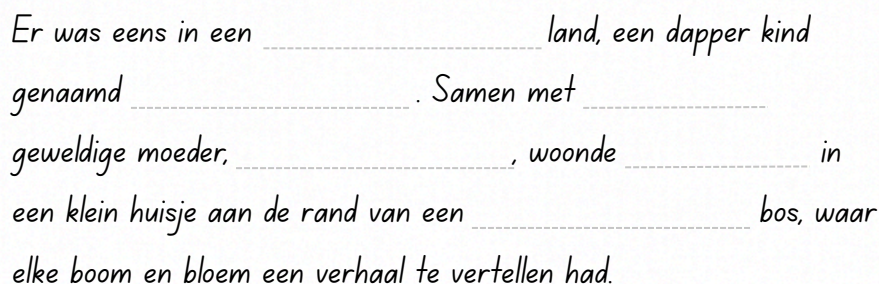 Er was eens in een ____________ land, een dapper kind
genaamd ____________ . Samen met ________
geweldige moeder, ____________, woonde ________ in
een klein huisje aan de rand van een ____________ bos, waar
elke boom en bloem een verhaal te vertellen had.